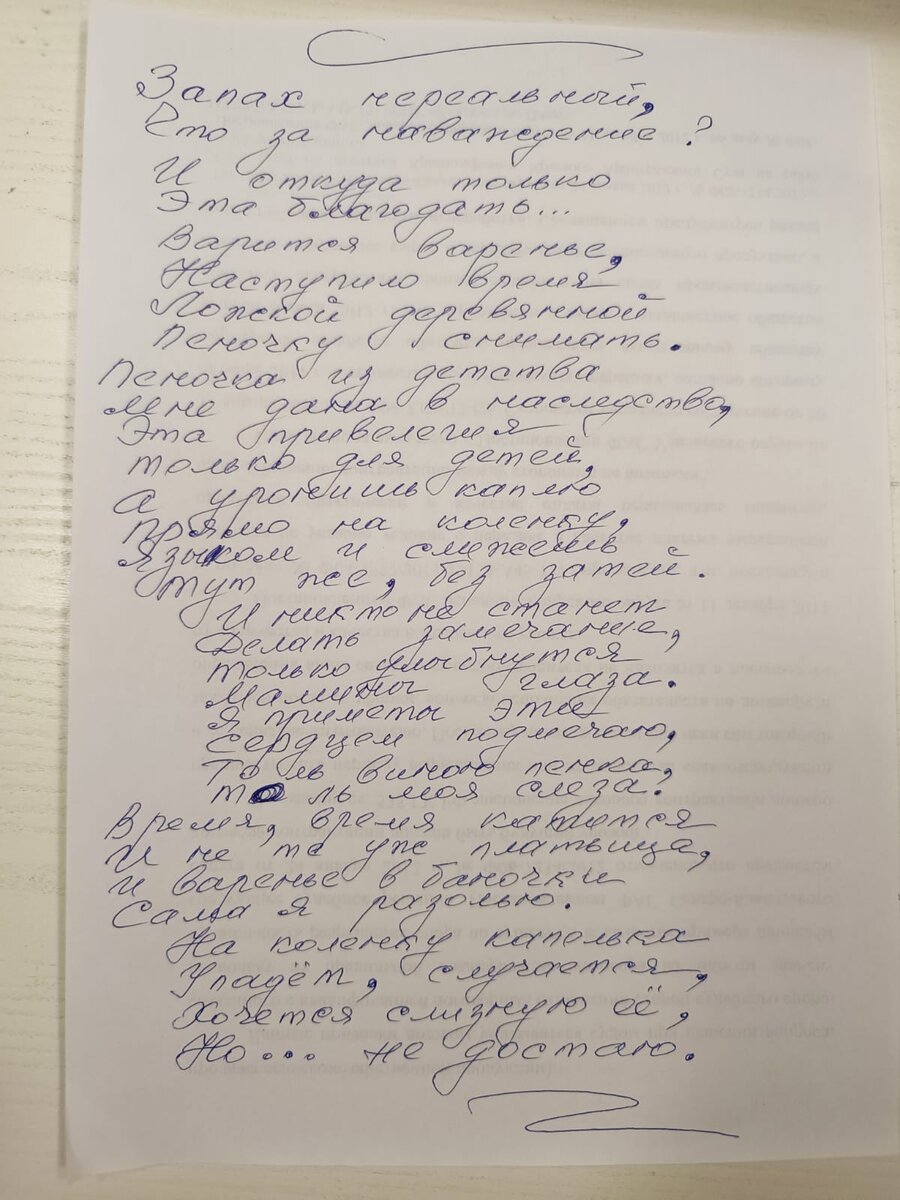 Запах нереальный,
Что за наваждение?
И откуда только
Эта благодать...
Варится варенье,
Наступило время
Ложкой деревянной
Пеночку снимать.
Пеночка из детства
Мне дана в наследство,
Эта привелегия
только для детей,
А уронишь каплю
прямо на коленку,
Языком и слижешь
тут же, без затей.
И никто не станет
Делать замечание,
только улыбнутся
Мамины глаза.
Я приметы эти
Сердцем подмечаю,
То ль виною пенка,
то ль моя слеза?
Время, время катится
И не те уж платьица,
И варенье в баночки
Сама я разолью.
На коленку капелька
Упадёт, случается,
Хочется слизнуть её,
Но... не достаю.